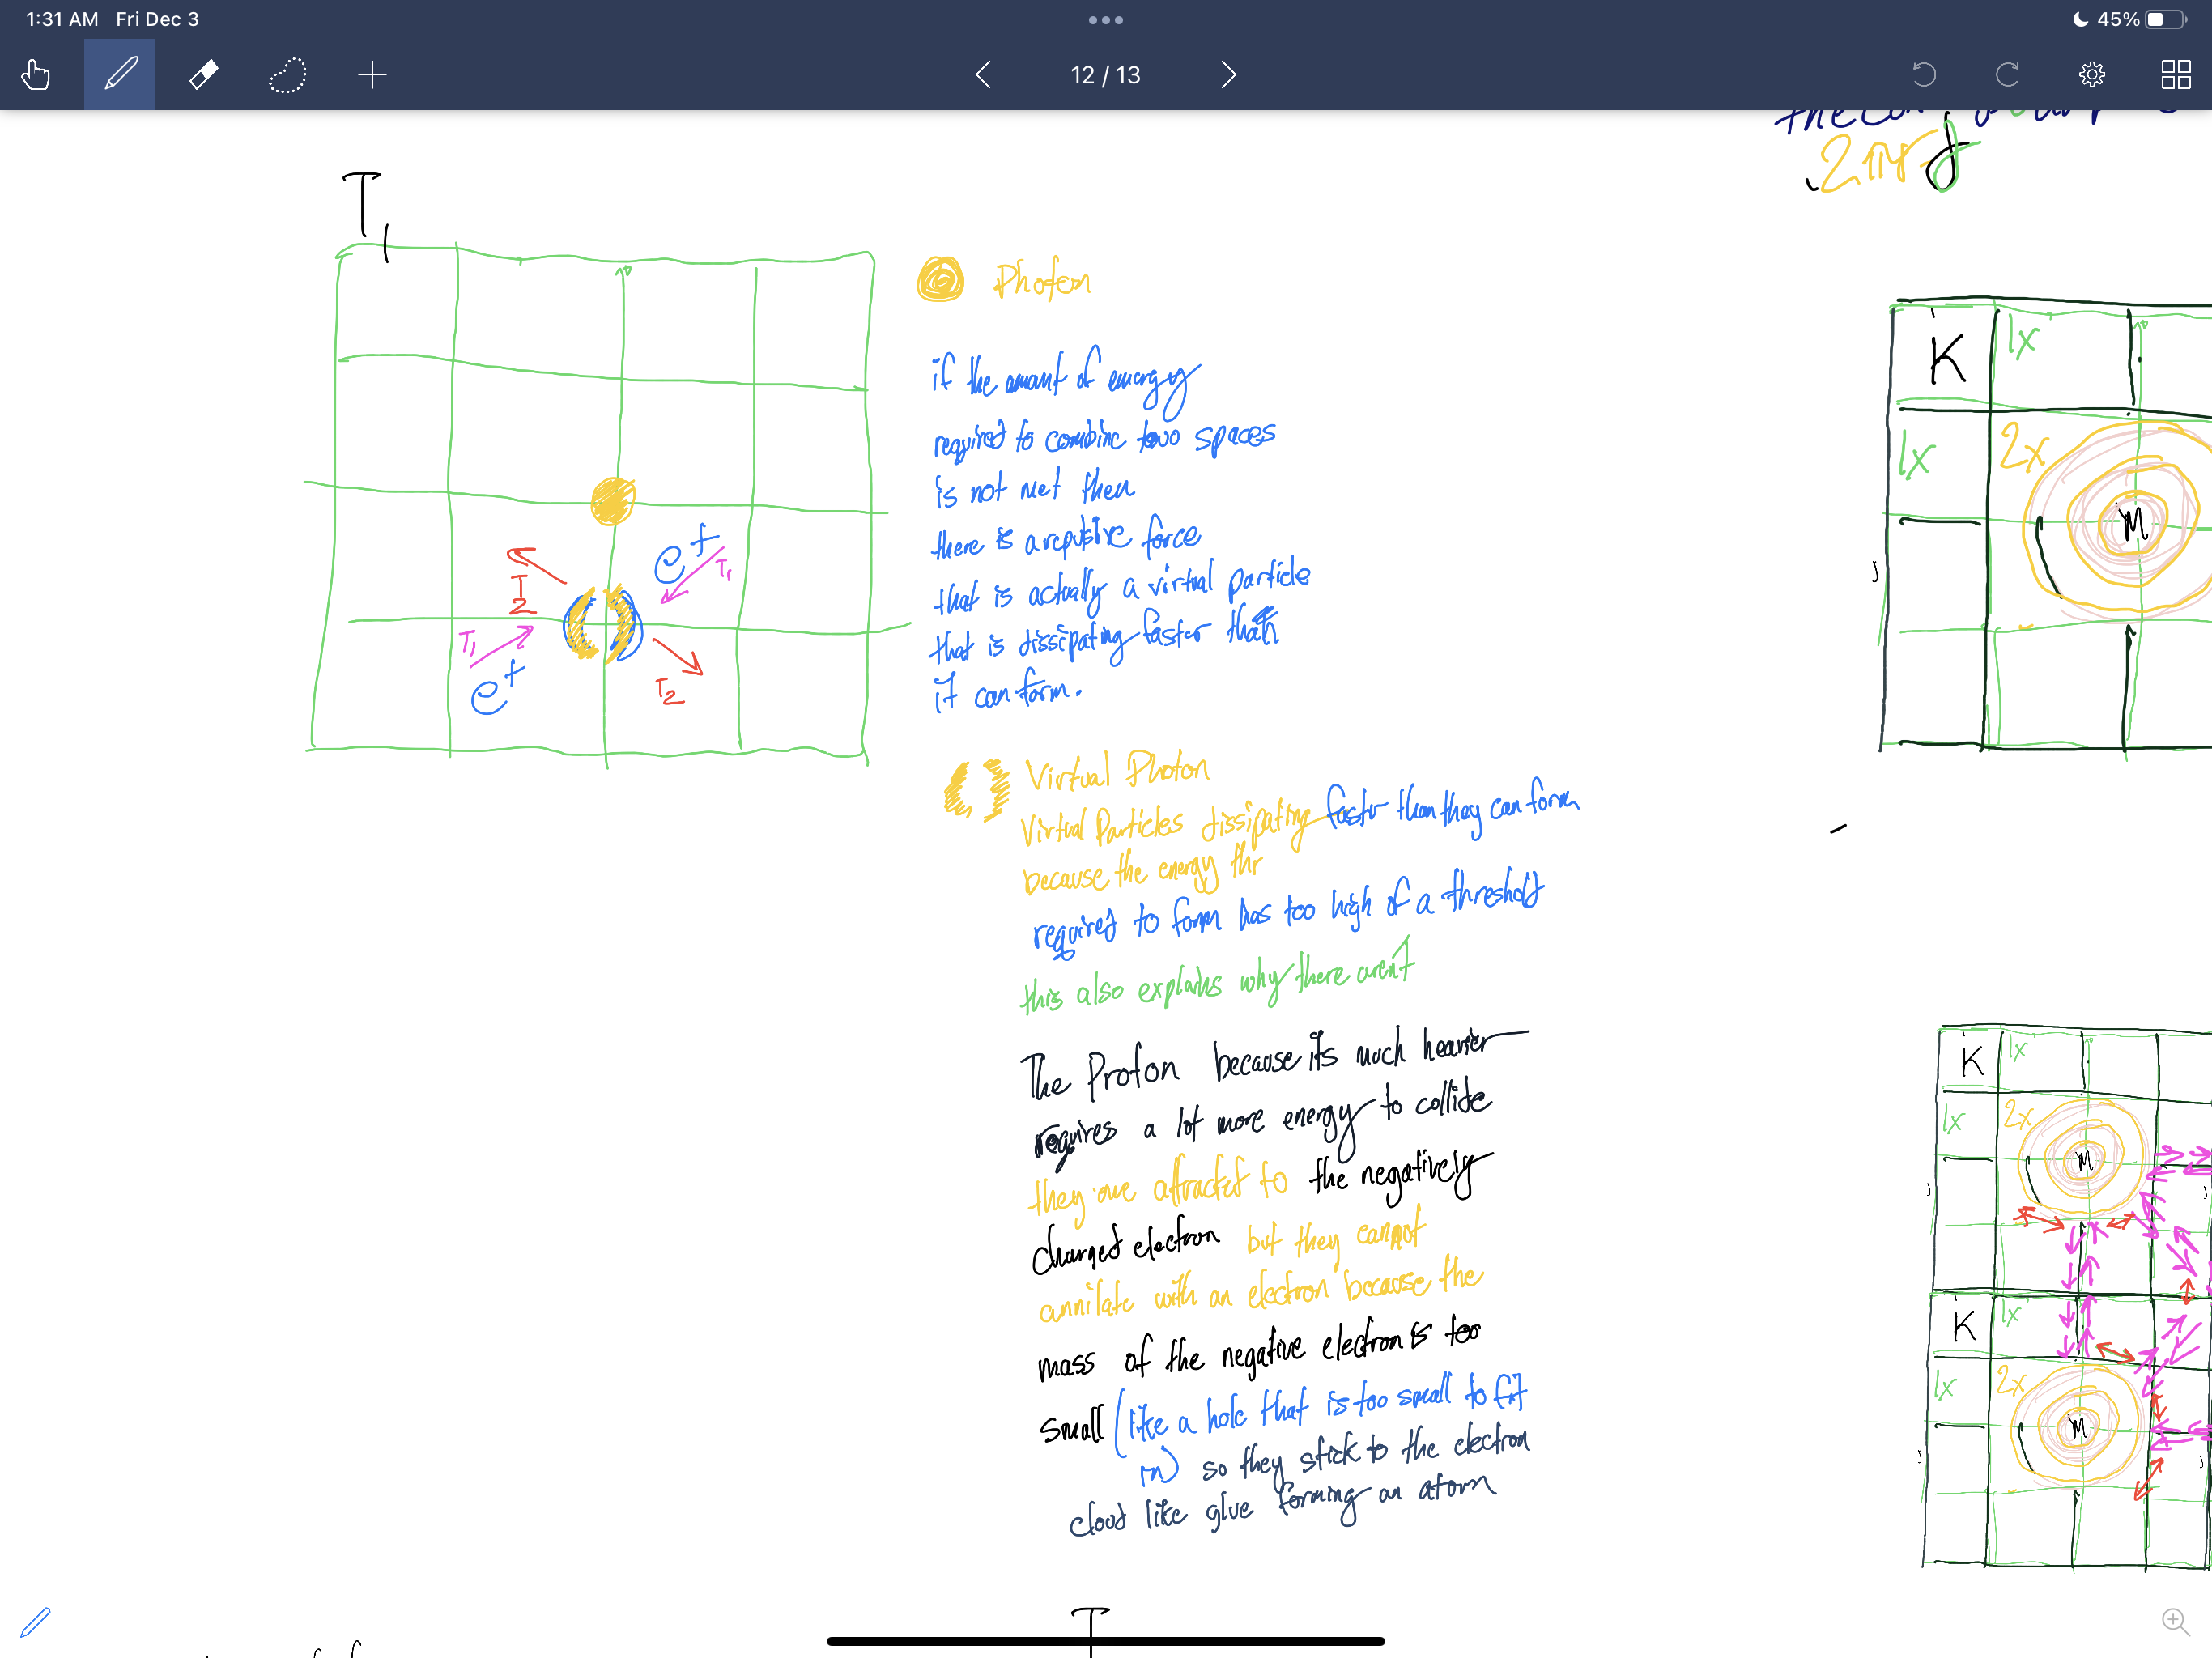 1:31 AM Fri Dec 3
45%
12 / 13
2πr
T1
Photon
if the amount of energy
required to combine two spaces
is not met then
there is a repulsive force
that is actually a virtual particle
that is dissipating faster than
it can form.
e+
T1
T2
T1
e+
T2
Virtual Photon
Virtual Particles dissipating faster than they can form
because the energy thr
required to form has too high of a threshold
this also explains why there aren't
The Proton because its much heavier
requires a lot more energy to collide
they are attracted to the negatively
charged electron but they cannot
annilate with an electron because the
mass of the negative electron is too
small (like a hole that is too small to fit
in) so they stick to the electron
cloud like glue forming an atom
T
K 1x
1x 2x
M
J
K 1x
1x 2x
M
J
K 1x
1x 2x
M
J